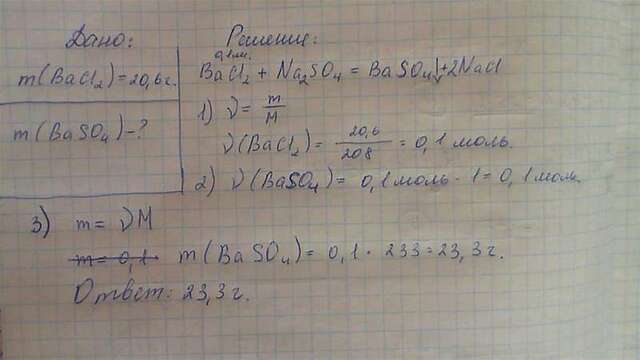 Дано:
m(BaCl₂)=20,6г.
m(BaSO₄)-?
Решение:
0,1м.
BaCl₂ + Na₂SO₄ = BaSO₄↓+2NaCl
1) ν = m/M
ν(BaCl₂) = 20,6/208 = 0,1 моль.
2) ν(BaSO₄)= 0,1 моль · 1 = 0,1 моль.
3) m = νM
m = 0,1 m(BaSO₄)= 0,1 · 233 = 23,3г.
Ответ: 23,3г.